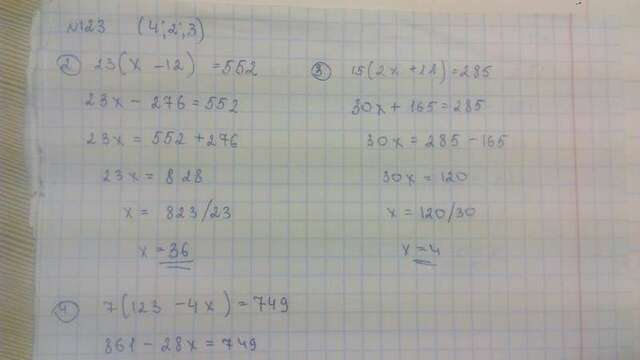 №123 (4; 2; 3)
2 23(x - 12) = 552
23x - 276 = 552
23x = 552 + 276
23x = 828
x = 823/23
x = 36
3 15(2x + 11) = 285
30x + 165 = 285
30x = 285 - 165
30x = 120
x = 120/30
x = 4
4 7(123 - 4x) = 749
861 - 28x = 749